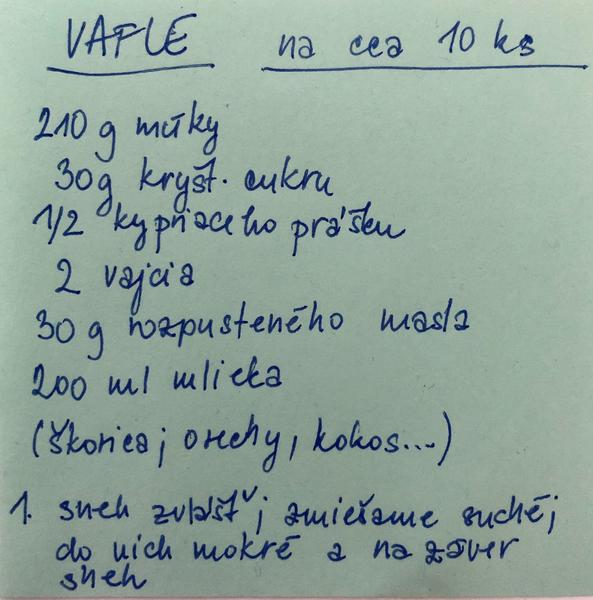 VAFLE na cca 10 ks
210 g múky
30g kryšt. cukru
1/2 kypriaceho prášku
2 vajcia
30 g rozpusteného masla
200 ml mlieka
(škorica, orechy, kokos...)
1. sneh zvlášť, zmiešame suché,
do nich mokré a na záver
sneh